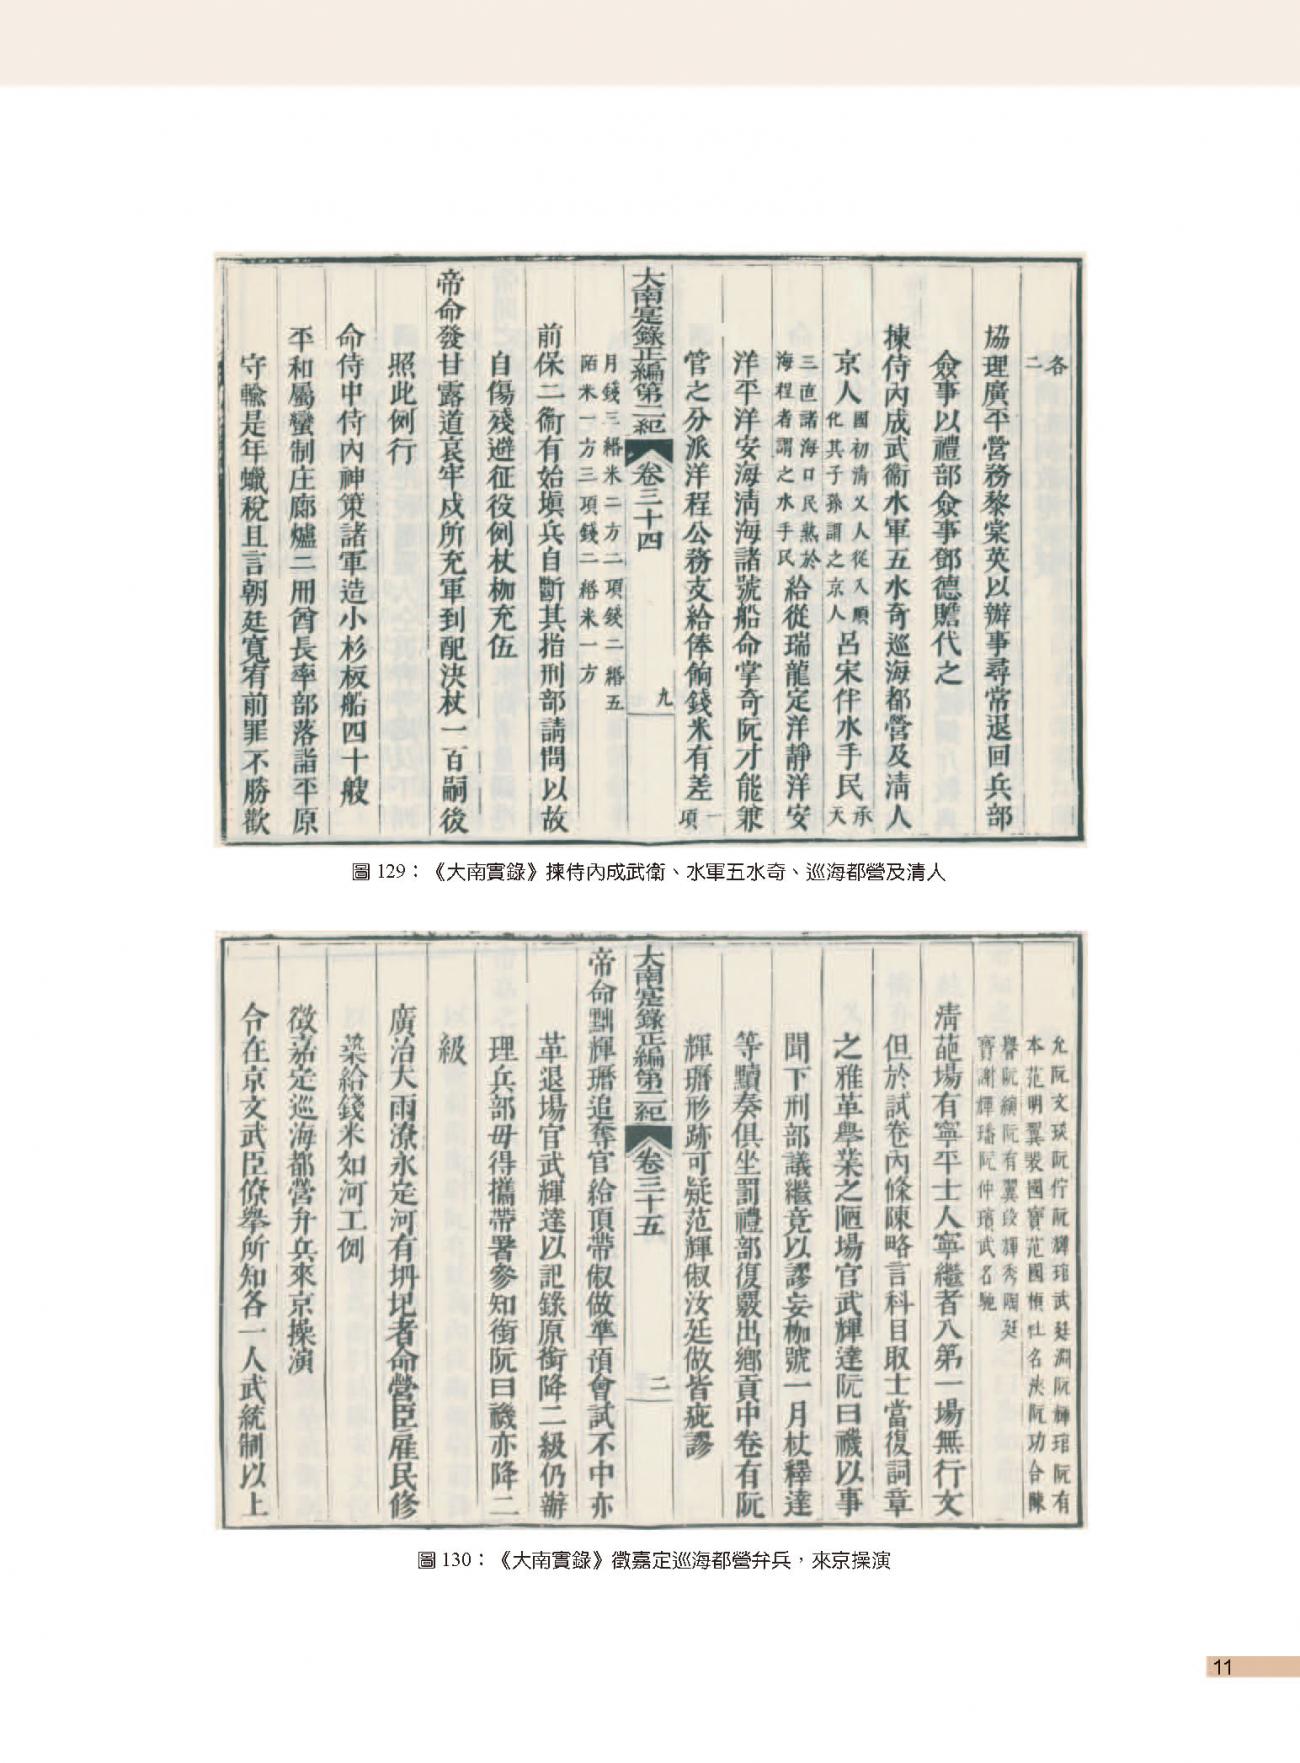 各
二
協理廣平營務黎棠英以辦事尋常退回兵部
僉事以禮部僉事鄧德贍代之
揀侍內成武衞水軍五水奇巡海都營及清人
京人國初清义人從入順化其子孫謂之京人呂宋伴水手民承天
三直諸海口民熟於海程者謂之水手民給從瑞龍定洋靜洋安
洋平洋安海清海諸號船命掌奇阮才能兼
管之分派洋程公務支給俸餉錢米有差一項
大南寔錄正編第二紀 卷三十四 九
月錢三緡米二方二項錢二緡五
陌米一方三項錢二緡米一方
前保二衞有始塡兵自斷其指刑部請問以故
自傷殘避征役例杖枷充伍
帝命發甘露道哀牢戍所充軍到配決杖一百嗣後
照此例行
命侍中侍內神策諸軍造小杉板船四十艘
平和屬蠻制庄廊爐二冊酋長率部落詣平原
守輸是年蠟稅且言朝廷寬宥前罪不勝歡
圖 129：《大南實錄》揀侍內成武衛、水軍五水奇、巡海都營及清人
允阮文琰阮佇阮輝琯武廷淵阮輝琯阮有
本范明翼裴國寶范國楨杜名浹阮功合陳
譽阮縝阮有翼段輝秀陶廷
寶謝輝璠阮仲璸武名馳
淸葩場有寧平士人寧繼者八第一場無行文
但於試卷內條陳略言科目取士當復詞章
之雅革舉業之陋場官武輝達阮曰禨以事
聞下刑部議繼竟以謬妄枷號一月杖釋達
等黷奏俱坐罰禮部復覈出鄉貢中卷有阮
輝瑨形跡可疑范輝俶汝廷做皆疵謬
大南寔錄正編第二紀 卷三十五 二
帝命黜輝瑨追奪官給頂帶俶做準預會試不中亦
革退場官武輝達以記錄原銜降二級仍辦
理兵部毋得攜帶署參知銜阮曰禨亦降二
級
廣治大雨潦永定河有坍圮者命營臣雇民修
築給錢米如河工例
徵嘉定巡海都營弁兵來京操演
令在京文武臣僚舉所知各一人武統制以上
圖 130：《大南實錄》徵嘉定巡海都營弁兵，來京操演
11